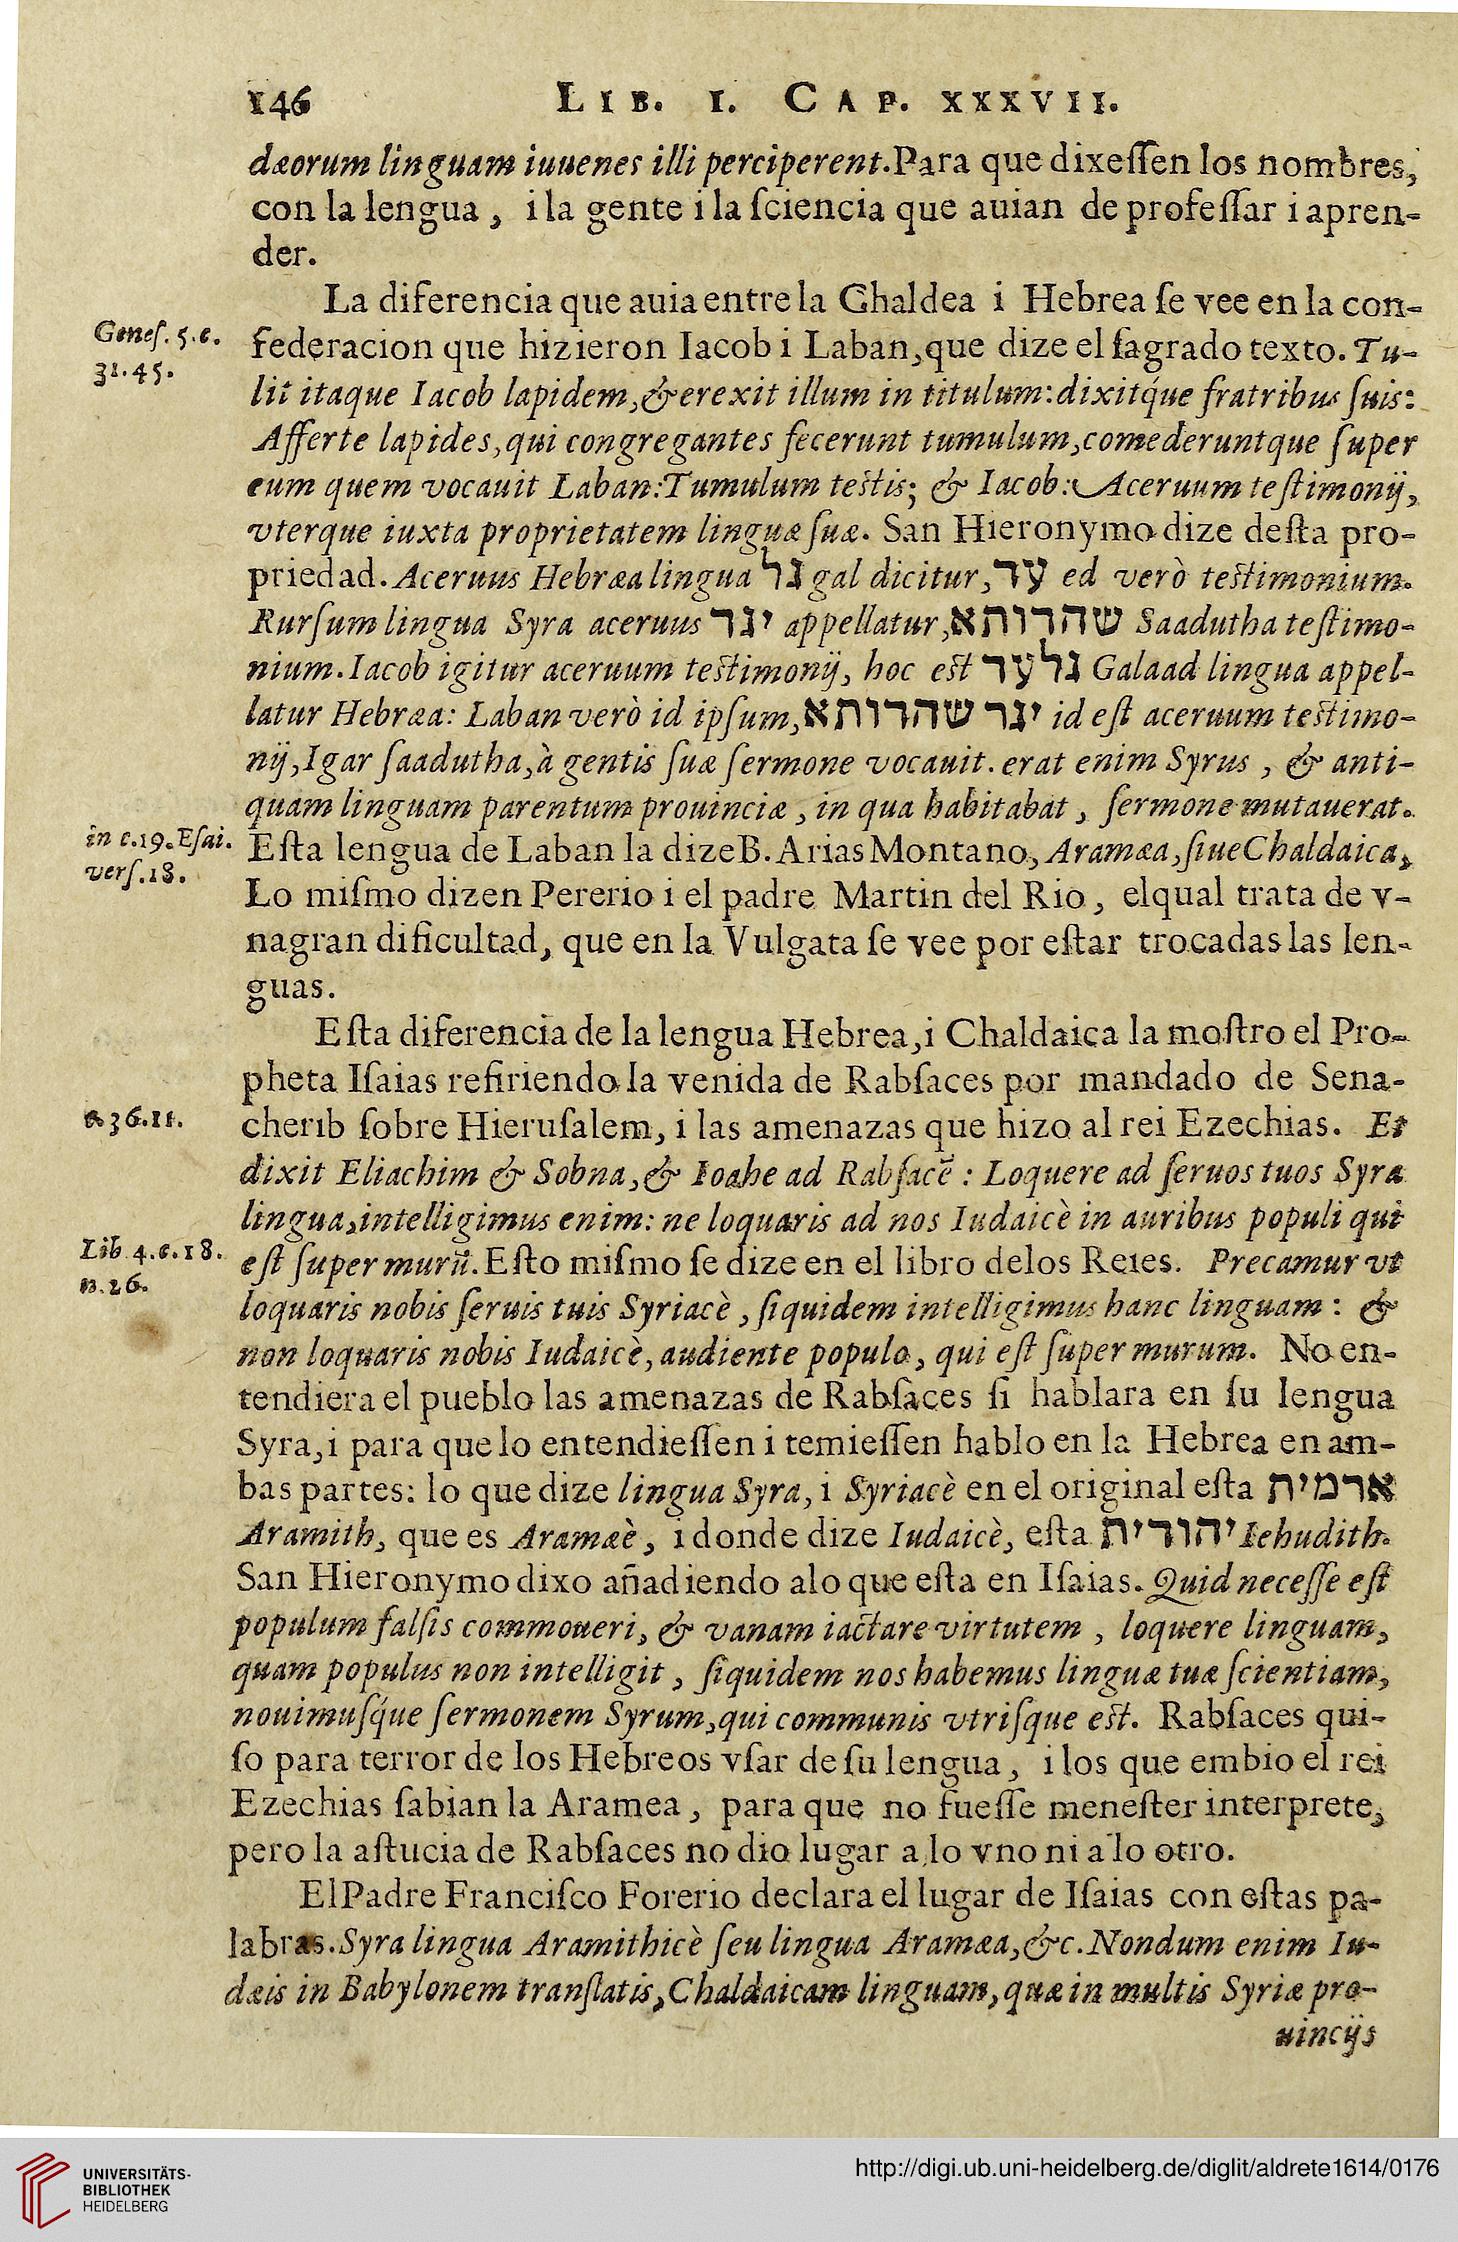 146 LIB. I. CAP. XXXVII.
dæorum linguam iuuenes illi perciperent. Para que dixeſſen los nombres,
con la lengua, i la gente i la ſciencia que auian de profeſſar i apren-
der.
La diferencia que auia entre la Chaldea i Hebrea ſe vee en la con-
Geneſ. 5. c.
31. 45.
federacion que hizieron Iacob i Laban, que dize el ſagrado texto. Tu-
lit itaque Iacob lapidem, & erexit illum in titulum: dixitq́ue fratribus ſuis:
Afferte lapides, qui congregantes fecerunt tumulum, comederuntque ſuper
eum quem vocauit Laban: Tumulum teſtis; & Iacob: Aceruum teſtimonij,
vterque iuxta proprietatem linguæ ſuæ. San Hieronymo dize deſta pro-
priedad. Aceruus Hebræa lingua גל gal dicitur, עד ed verò teſtimonium.
Rurſum lingua Syra aceruus יגר appellatur, שהדותא Saadutha teſtimo-
nium. Iacob igitur aceruum teſtimonij, hoc eſt גלעד Galaad lingua appel-
latur Hebræa: Laban verò id ipſum, יגר שהדותא id eſt aceruum teſtimo-
nij, Igar ſaadutha, à gentis ſuæ ſermone vocauit. erat enim Syrus, & anti-
quam linguam parentum prouinciæ, in qua habitabat, ſermone mutauerat.
in c. 19. Eſai.
verſ. 18.
Eſta lengua de Laban la dize B. Arias Montano, Aramæa, ſiue Chaldaica,
Lo miſmo dizen Pererio i el padre Martin del Rio, elqual trata de v-
nagran dificultad, que en la Vulgata ſe vee por eſtar trocadas las len-
guas.
Eſta diferencia de la lengua Hebrea, i Chaldaica la moſtro el Pro-
pheta Iſaias refiriendo la venida de Rabſaces por mandado de Sena-
c. 36. 11.
cherib ſobre Hieruſalem, i las amenazas que hizo al rei Ezechias. Et
dixit Eliachim & Sobna, & Ioahe ad Rabſacē: Loquere ad ſeruos tuos Syra
lingua, intelligimus enim: ne loquaris ad nos Iudaicè in auribus populi qui
Lib 4. c. 18.
n. 26.
eſt ſuper murū. Eſto miſmo ſe dize en el libro delos Reies. Precamur vt
loquaris nobis ſeruis tuis Syriacè, ſiquidem intelligimus hanc linguam: &
non loquaris nobis Iudaicè, audiente populo, qui eſt ſuper murum. No en-
tendiera el pueblo las amenazas de Rabſaces ſi hablara en ſu lengua
Syra, i para que lo entendieſſen i temieſſen hablo en la Hebrea en am-
bas partes: lo que dize lingua Syra, i Syriacè en el original eſta ארמית
Aramith, que es Aramæè, i donde dize Iudaicè, eſta יהודית Iehudith.
San Hieronymo dixo añadiendo alo que eſta en Iſaias. Quid neceſſe eſt
populum falſis commoueri, & vanam iactare virtutem, loquere linguam,
quam populus non intelligit, ſiquidem nos habemus linguæ tuæ ſcientiam,
nouimuſq́ue ſermonem Syrum, qui communis vtriſque eſt. Rabſaces qui-
ſo para terror de los Hebreos vſar de ſu lengua, i los que embio el rei
Ezechias ſabian la Aramea, para que no fueſſe meneſter interprete,
pero la aſtucia de Rabſaces no dio lugar a lo vno ni a lo otro.
El Padre Franciſco Forerio declara el lugar de Iſaias con eſtas pa-
labras. Syra lingua Aramithicè ſeu lingua Aramæa, &c. Nondum enim Iu-
dæis in Babylonem tranſlatis, Chaldaicam linguam, quæ in multis Syriæ pro-
uincijs
UNIVERSITÄTS-
BIBLIOTHEK
HEIDELBERG
http://digi.ub.uni-heidelberg.de/diglit/aldrete1614/0176